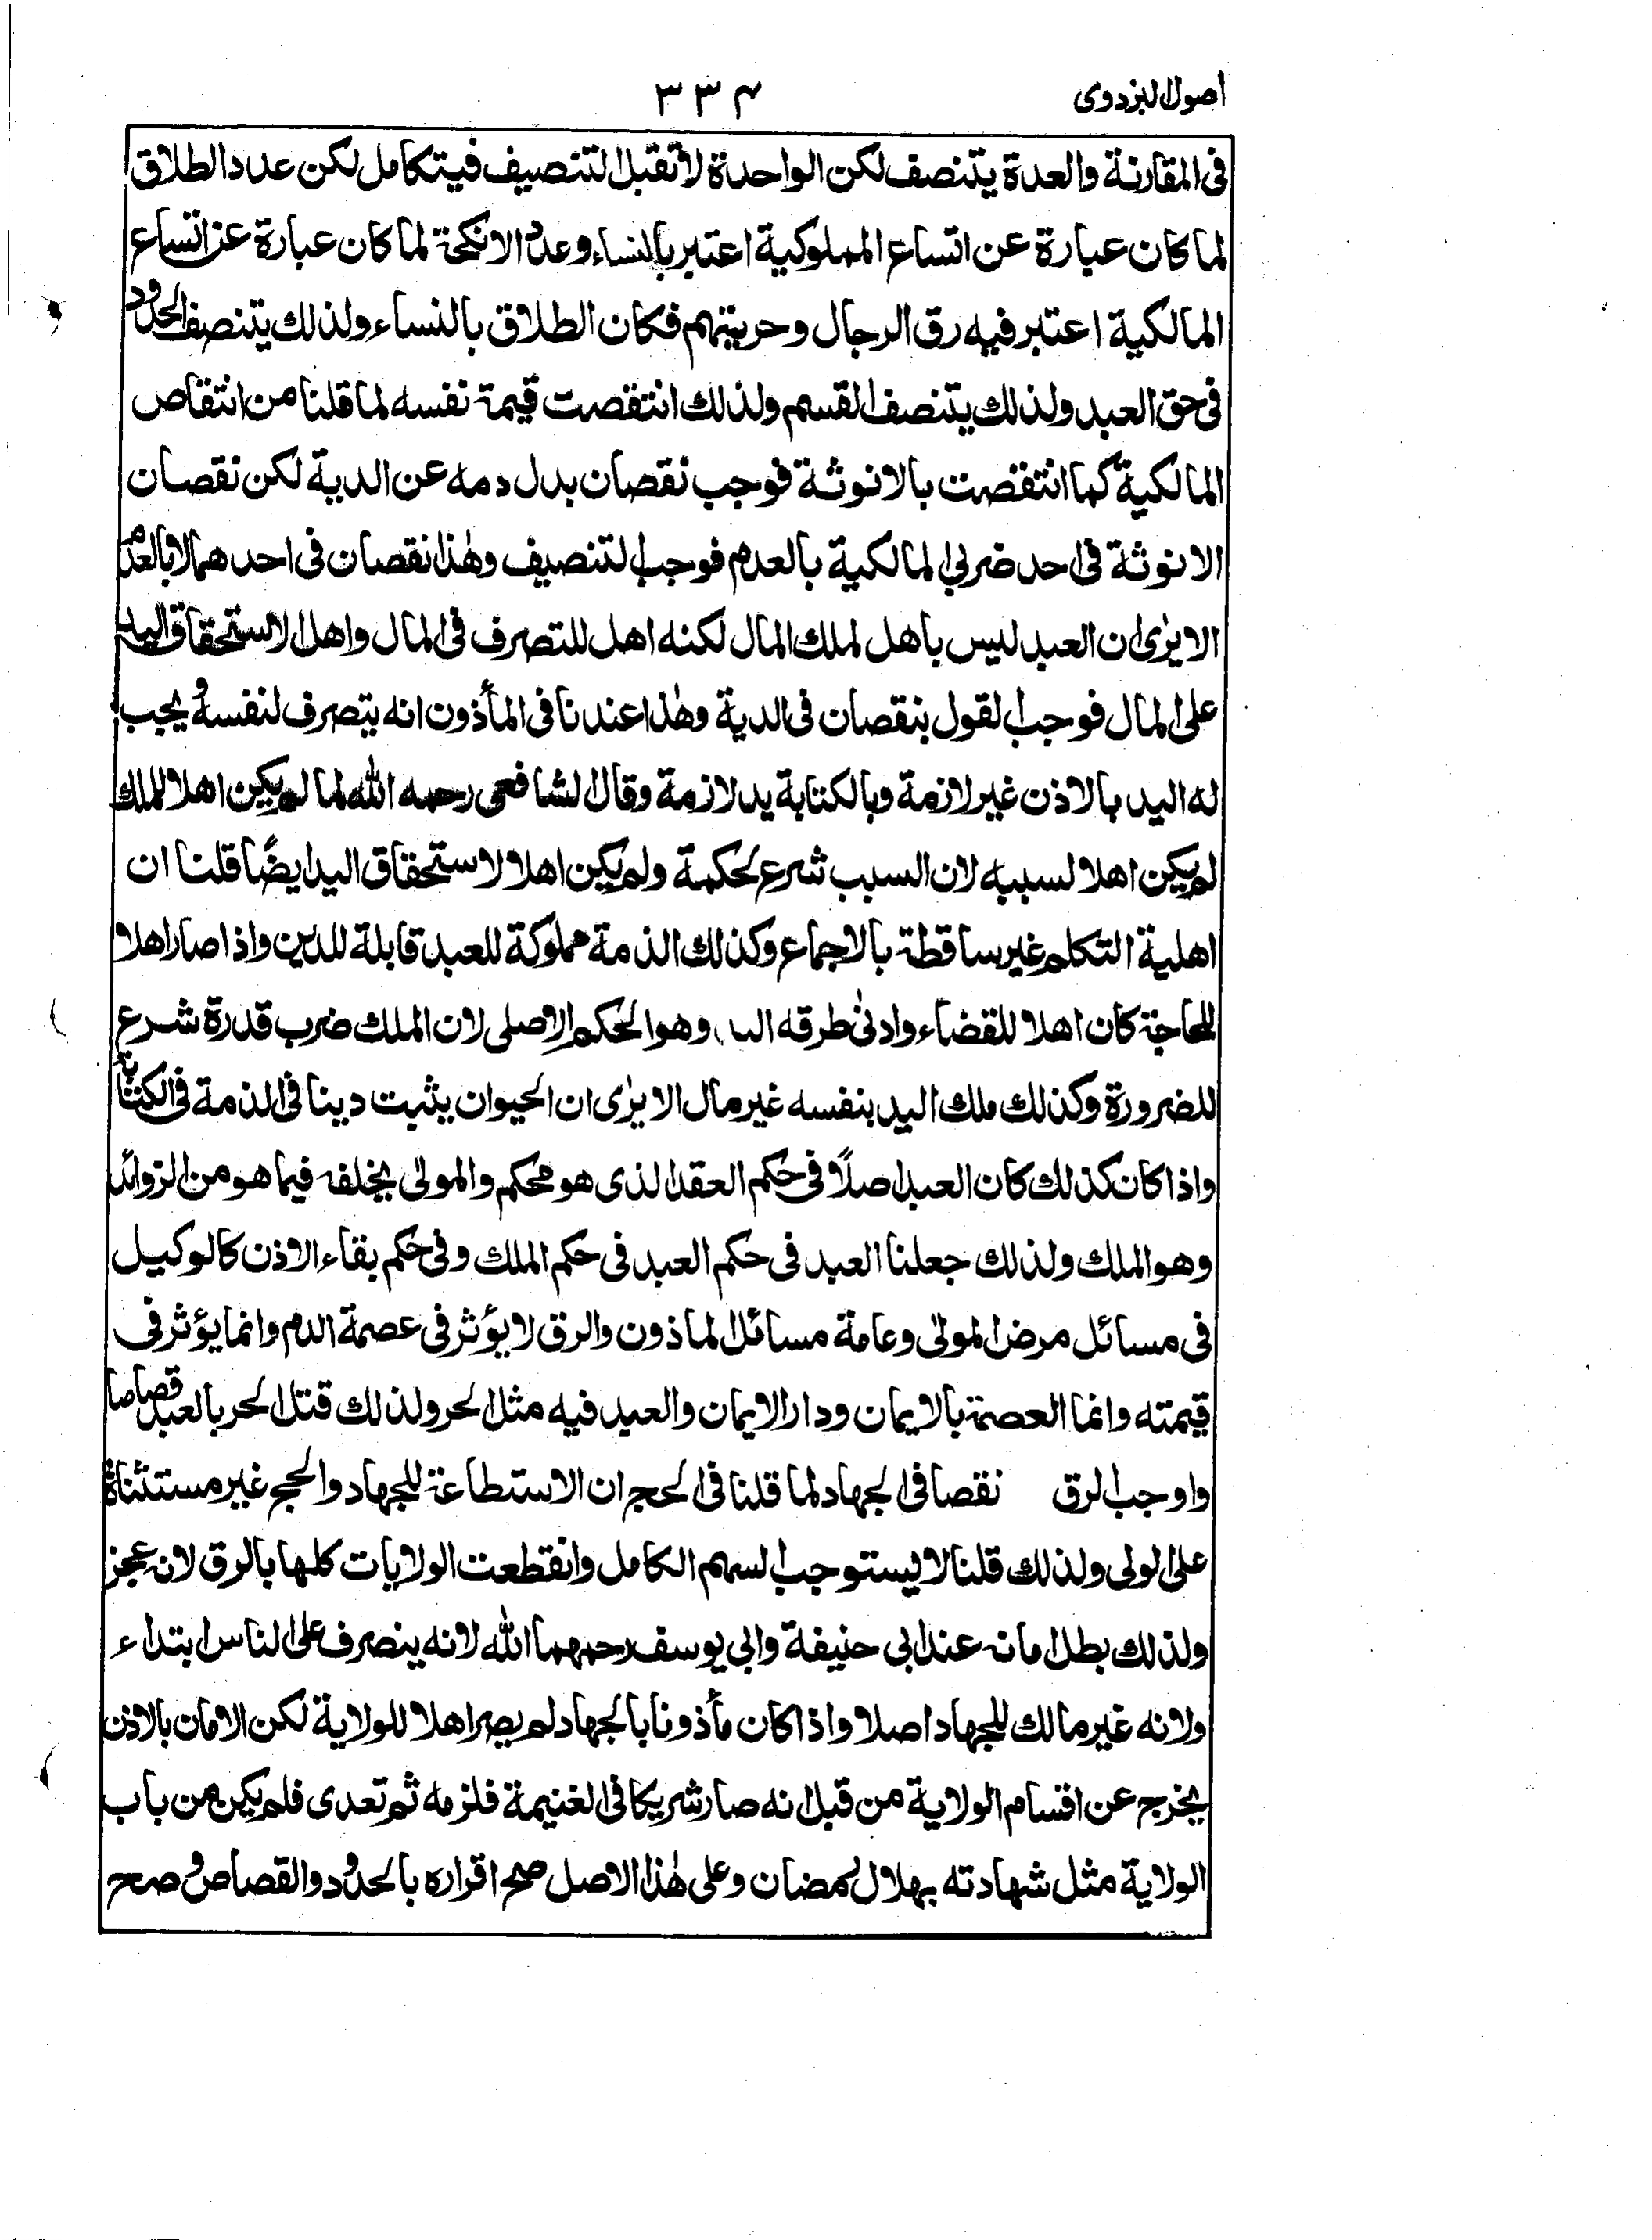 اصول البزدوی
۳۳۴
فى المقارنة والعدة يتنصف لكن الواحدة لا تقبل التنصيف فيتكامل لكن عدد الطلاق
لما كان عبارة عن اتساع المملوكية اعتبر بالنساء وعدد الانكحة لما كان عبارة عن اتساع
المالكية اعتبر فيه رق الرجال وحريتهم فكان الطلاق بالنساء ولذلك يتنصف الحدود
فى حق العبد ولذلك يتنصف القسم ولذلك انتقصت قيمة نفسه لما قلنا من انتقاص
المالكية كما انتقصت بالانوثة فوجب نقصان بدل دمه عن الدية لكن نقصان
الانوثة فى احد ضربى المالكية بالعدم فوجب التنصيف وهذا نقصان فى احدهما لا بالعدم
الا يرى ان العبد ليس باهل لملك المال لكنه اهل للتصرف فى المال واهل لاستحقاق اليد
على المال فوجب القول بنقصان فى الدية وهذا عندنا فى المأذون انه يتصرف لنفسه ويجب
له اليد بالاذن غير لازمة وبالكتابة يد لازمة وقال الشافعى رحمه الله لما لم يكن اهلا للملك
لم يكن اهلا لسببه لان السبب شرع لحكمة ولم يكن اهلا لاستحقاق اليد ايضًا قلنا ان
اهلية التكلم غير ساقطة بالاجماع وكذلك الذمة مملوكة للعبد قابلة للدين واذا صار اهلا
للحاجة كان اهلا للقضاء وادنى طرقه اليد وهو الحكم الاصلى لان الملك ضرب قدرة شرع
للضرورة وكذلك ملك اليد بنفسه غير مال الا يرى ان الحيوان يثبت دينا فى الذمة فى الكتابة
واذا كان كذلك كان العبد اصلًا فى حكم العقد الذى هو محكم والمولى يخلفه فيما هو من الزوائد
وهو الملك ولذلك جعلنا العبد فى حكم العبد فى حكم الملك وفى حكم بقاء الاذن كالوكيل
فى مسائل مرض المولى وعامة مسائل الماذون والرق لا يؤثر فى عصمة الدم وانما يؤثر فى
قيمته وانما العصمة بالايمان ودار الايمان والعبد فيه مثل الحر ولذلك قتل الحر بالعبد قصاصا
واوجب الرق نقصا فى الجهاد لما قلنا فى الحج ان الاستطاعة للجهاد والحج غير مستثناة
على الولى ولذلك قلنا لا يستوجب السهم الكامل وانقطعت الولايات كلها بالرق لانه عجز
ولذلك بطل امانه عند ابى حنيفة وابى يوسف رحمهما الله لانه ينصرف على الناس ابتداء
ولانه غير مالك للجهاد اصلا واذا كان مأذونا بالجهاد لم يصر اهلا للولاية لكن الامان بالاذن
يخرج عن اقسام الولاية من قبل انه صار شريكا فى الغنيمة فلزمه ثم تعدى فلم يكن من باب
الولاية مثل شهادته بهلال رمضان وعلى هذا الاصل صح اقراره بالحدود والقصاص وصح